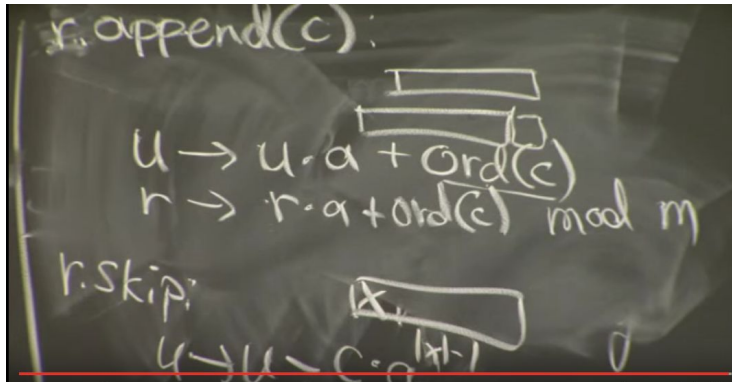 r.append(c):
u → u·a + ord(c)
r → r·a + ord(c) mod m
r.skip:
u → u − c·a^|x|-1